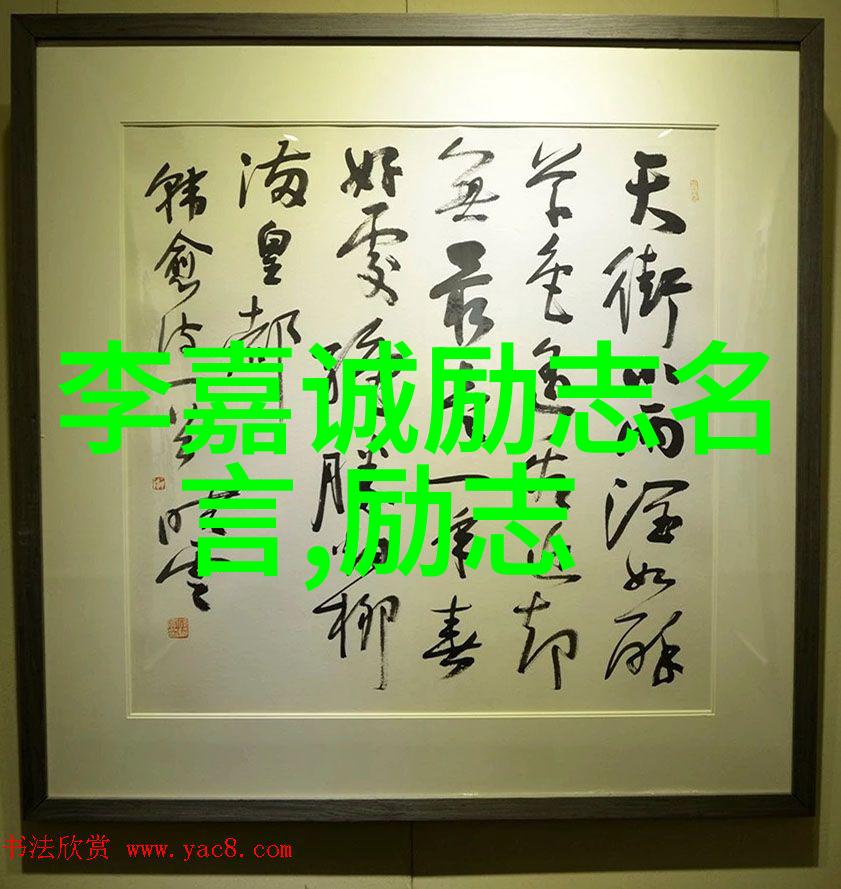 天街小雨润如酥
草色遥看近却
無最是一年春
好處絕勝烟柳
满皇都
韩愈诗一首
李嘉诚励志名
言,励志
书法欣赏 www.yac8.com